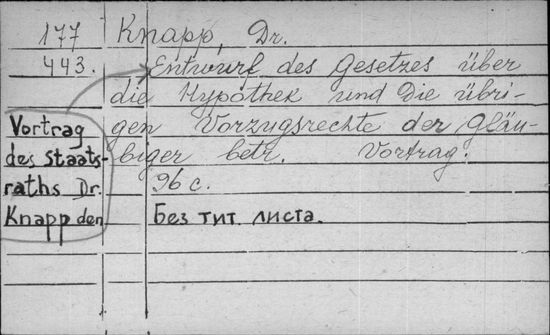 177 Knapp, Dr.
443. Entwurf des Gesetzes über
die Hypothek und Die übri-
gen Vorzugsrechte der Gläu-
biger betr. Vortrag.
96 c.
Без тит. листа.
Vortrag
des Staats-
raths Dr.
Knapp den